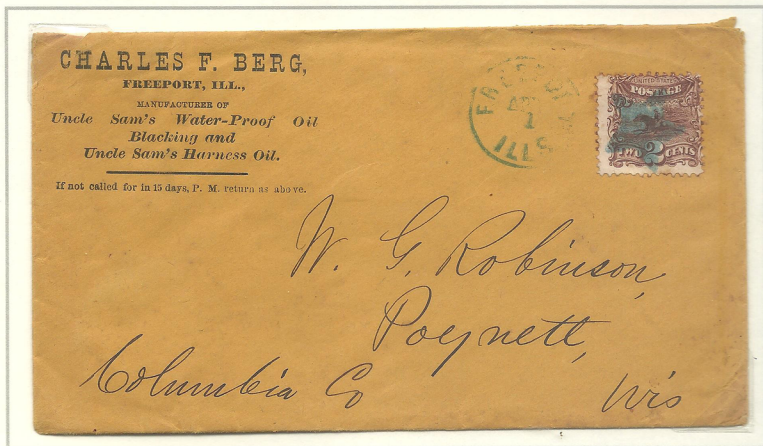 CHARLES F. BERG,
FREEPORT, ILL.,
MANUFACTURER OF
Uncle Sam's Water-Proof Oil
Blacking and
Uncle Sam's Harness Oil.
If not called for in 15 days, P. M. return as above.
FREEPORT
1
ILLS
UNITED STATES
POSTAGE
TWO 2 CENTS
W. G. Robinson,
Poynett,
Columbia Co Wis